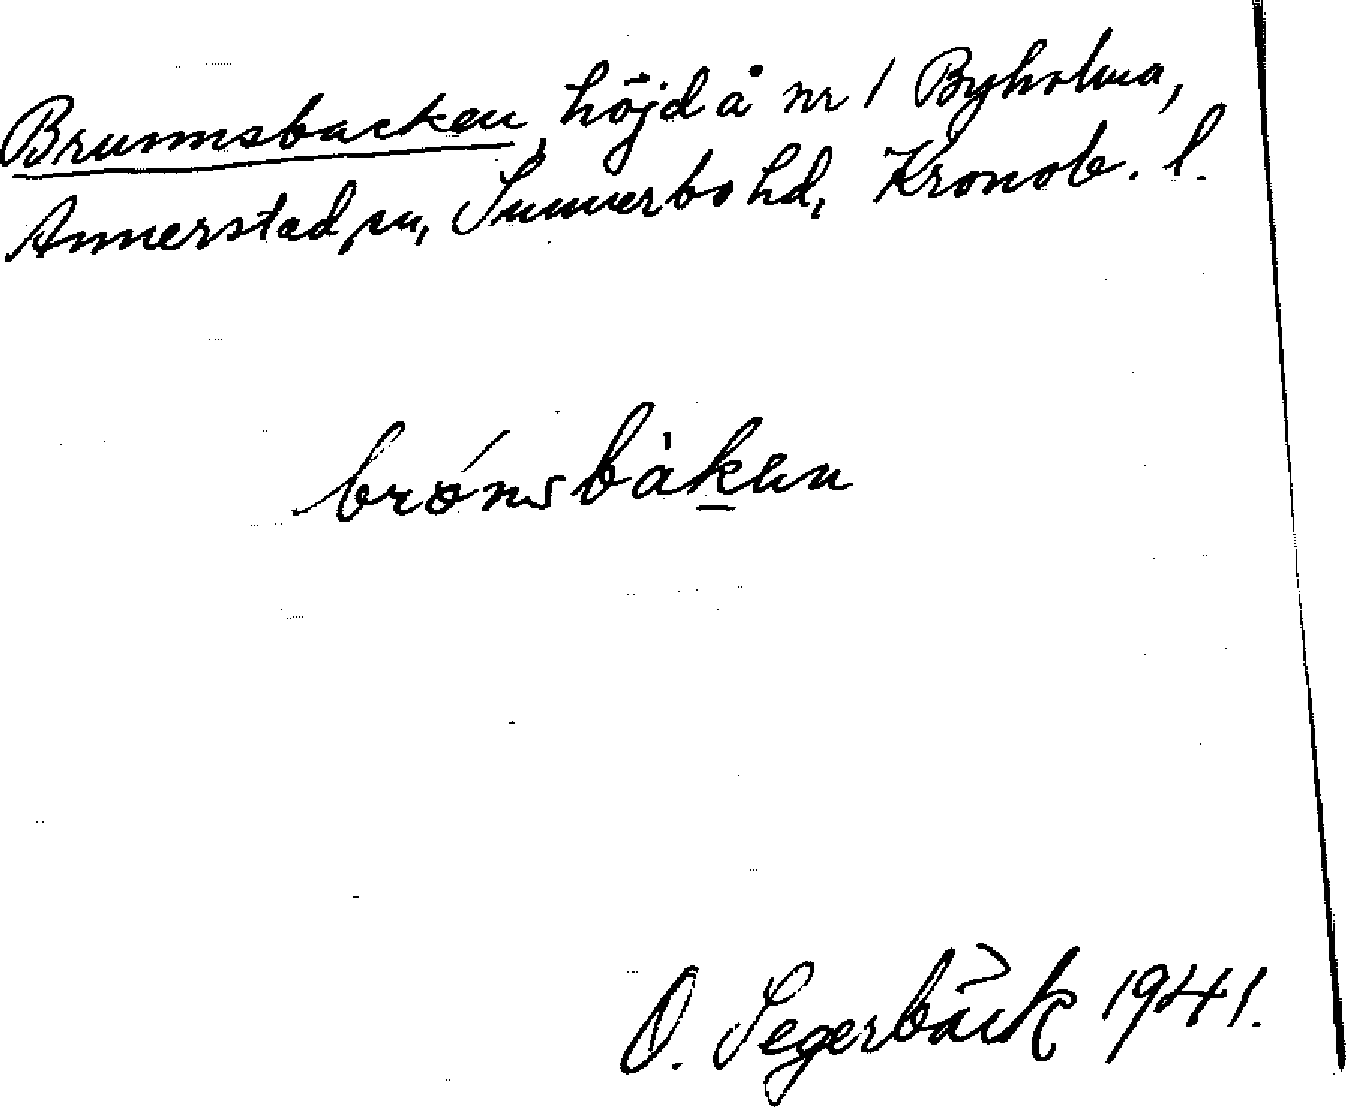 Brunnsbacken, höjd å nr 1 Byholma,
Annerstad sn, Sunnerbo hd, Kronob. l.
brǿnsbàken
O. Segerbäck 1941.